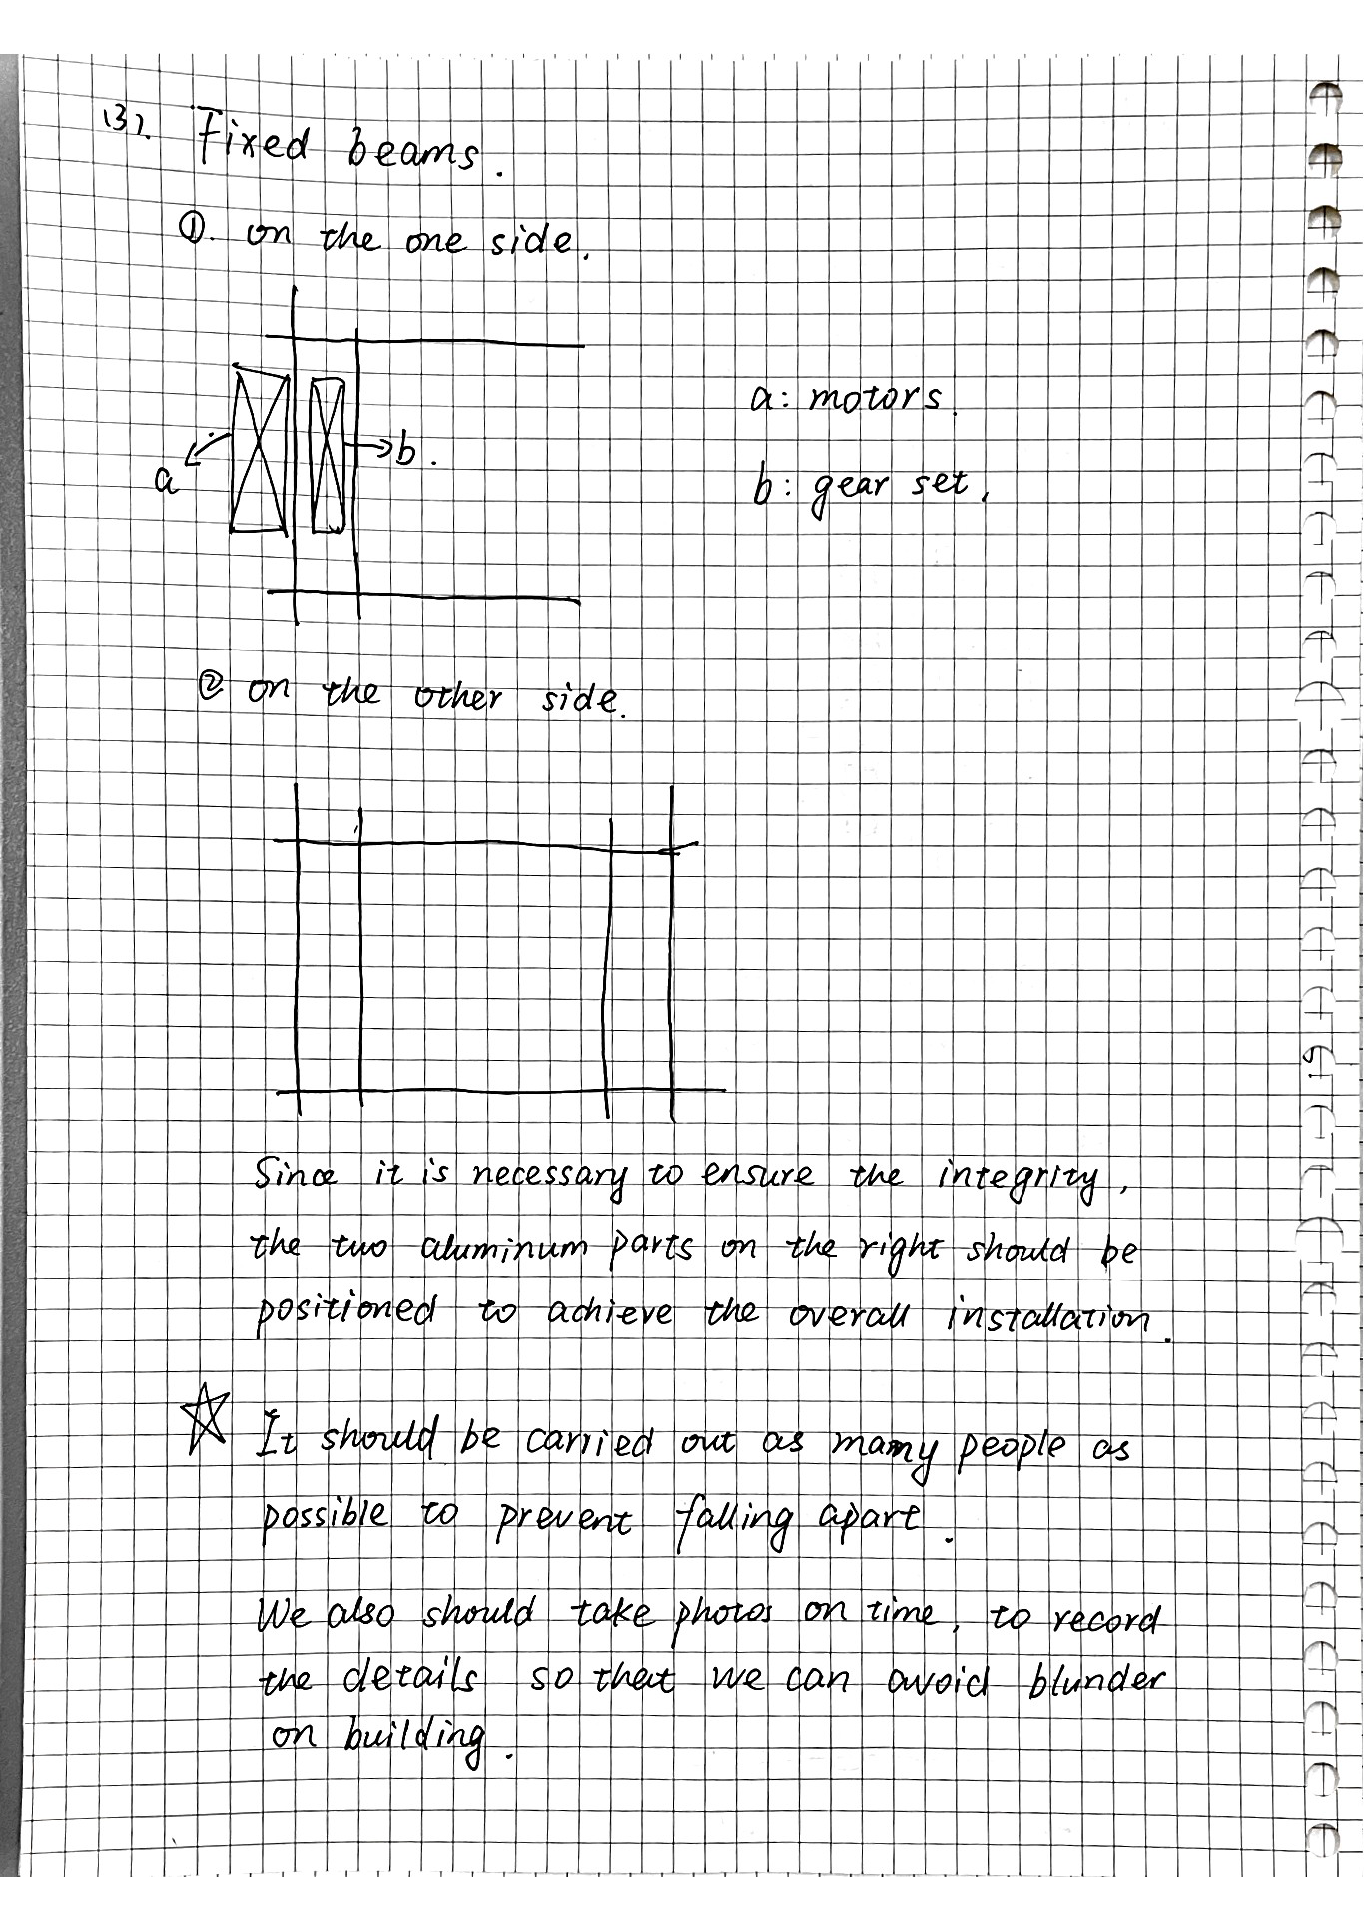 (3). Fixed beams.
①. on the one side.
a: motors.
a
b.
b: gear set.
② on the other side.
Since it is necessary to ensure the integrity,
the two aluminum parts on the right should be
positioned to achieve the overall installation.
☆ It should be carried out as many people as
possible to prevent falling apart.
We also should take photos on time, to record
the details so that we can avoid blunder
on building.